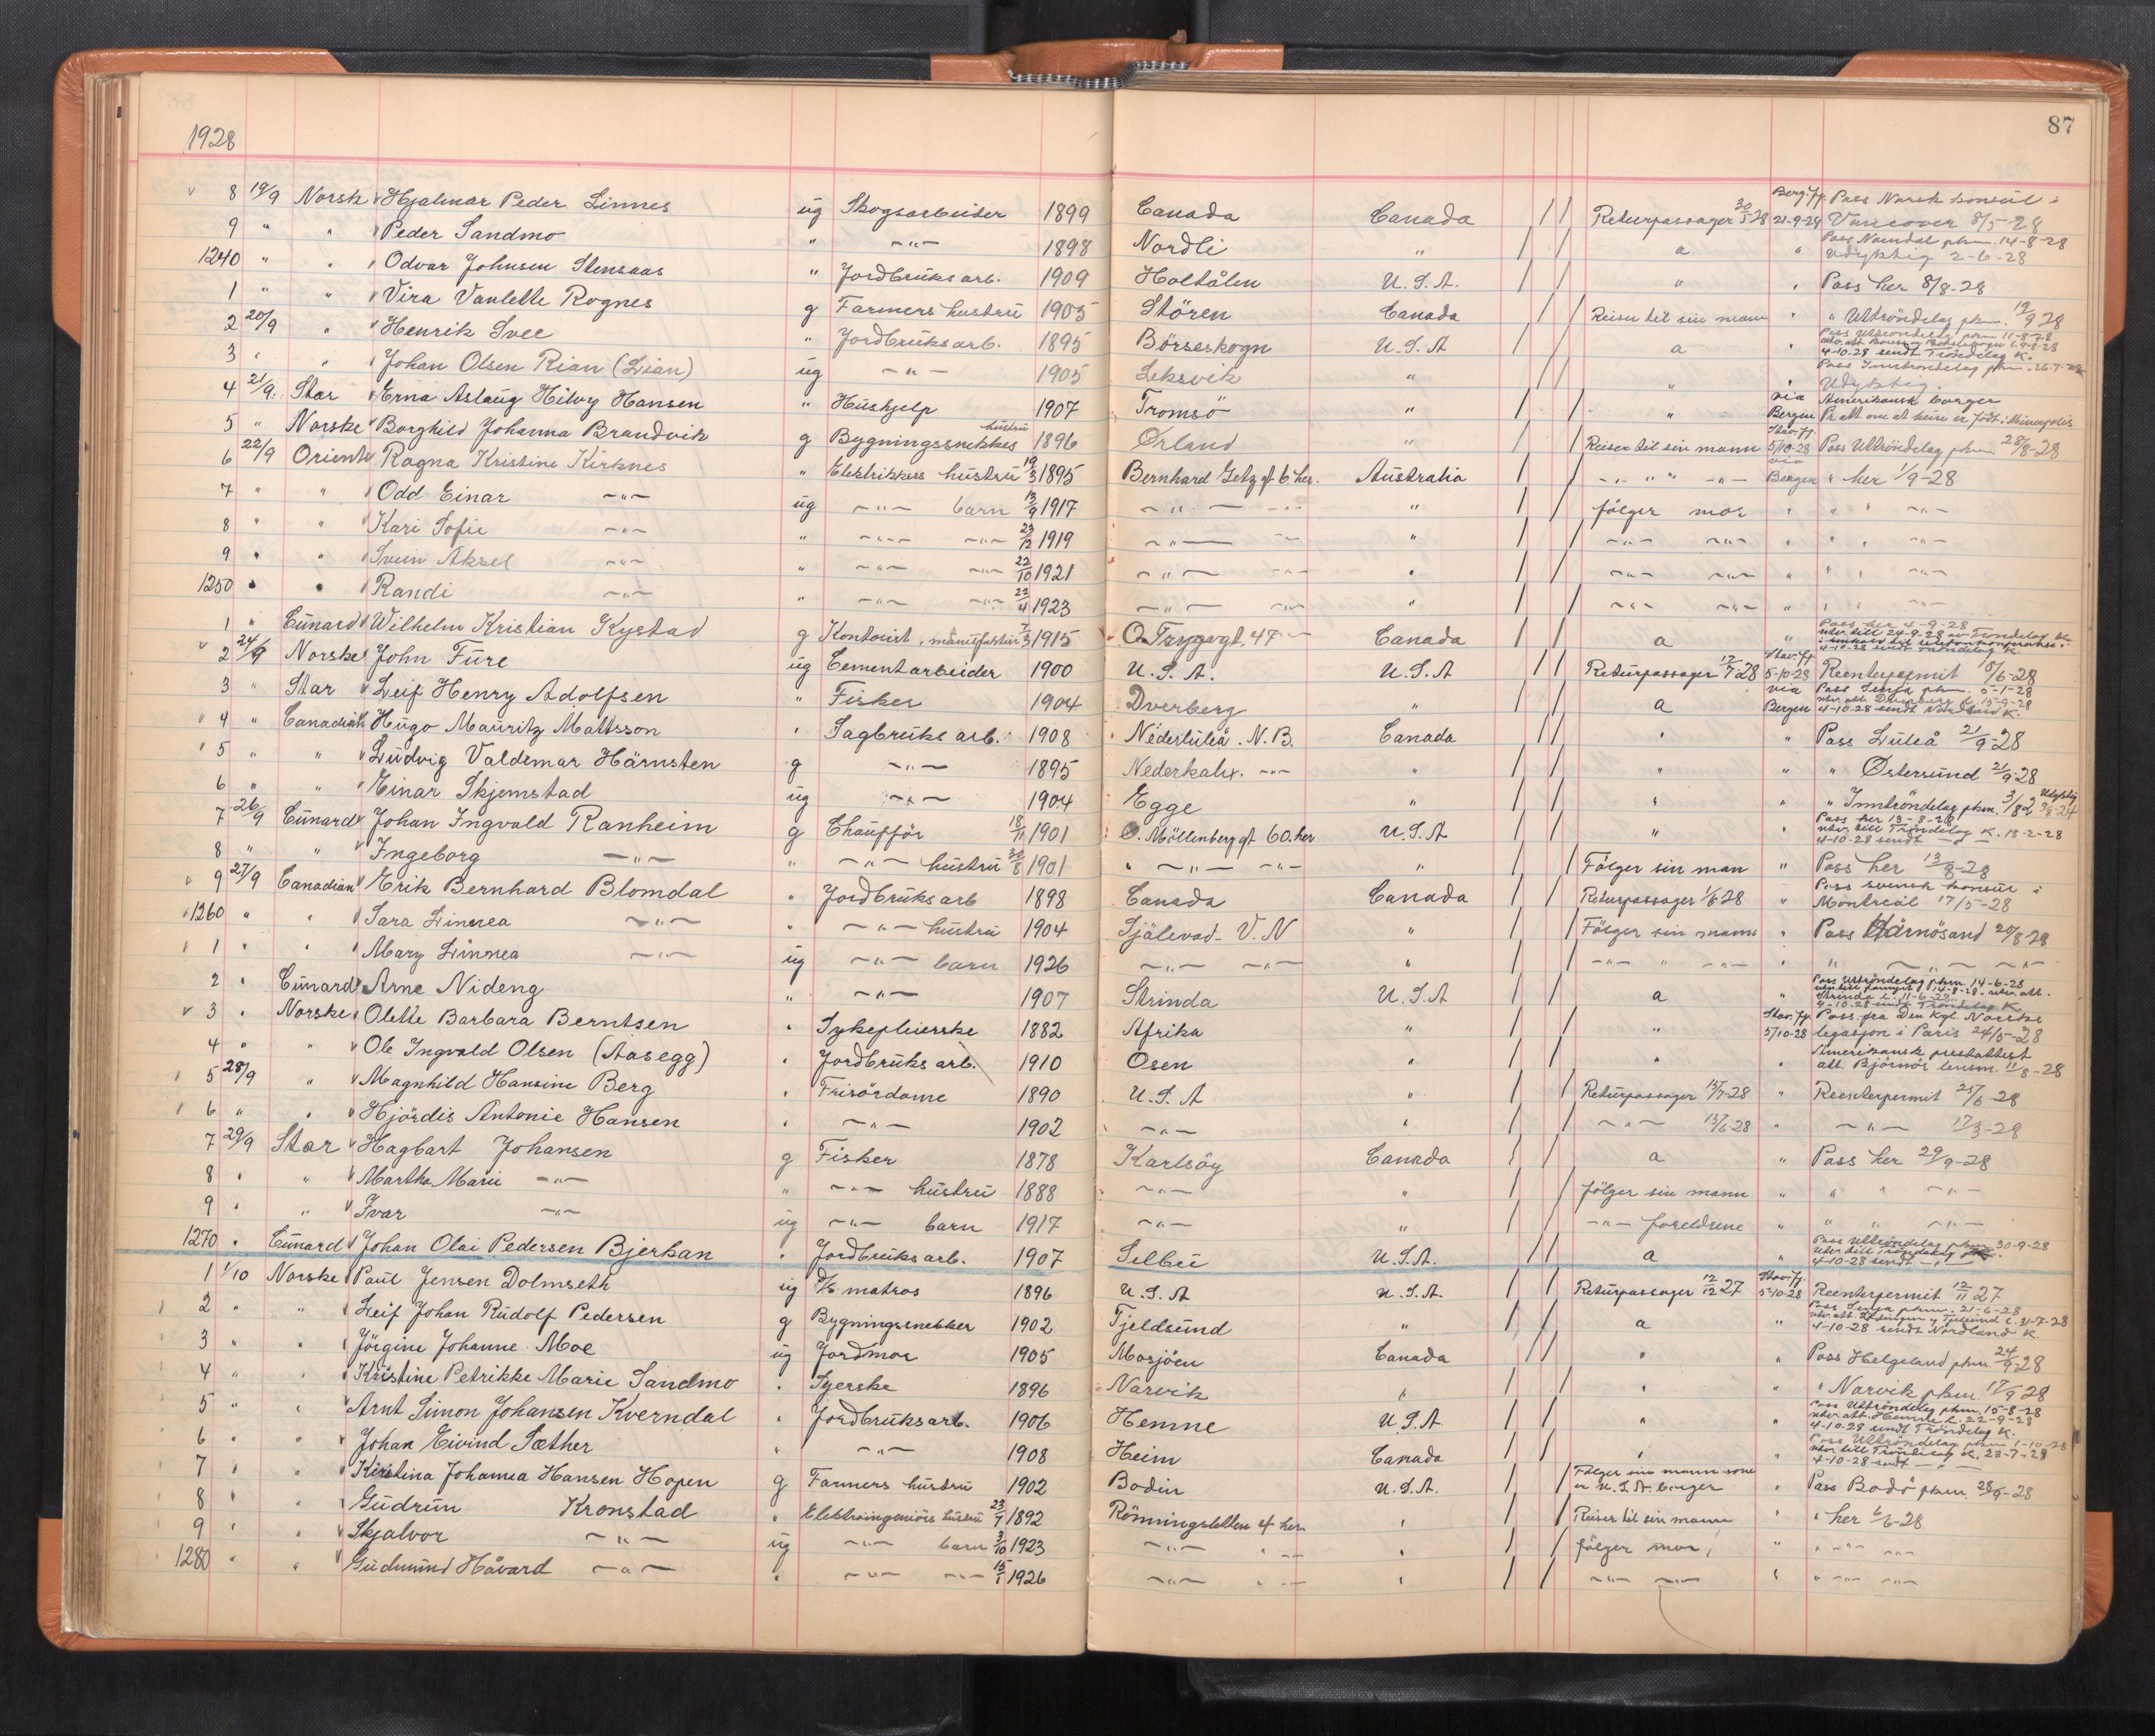 87
1928
8 19/9 Norsk Hjalmar Peder Linnes ug Skogsarbeider 1899 Canada Canada Returpassager 30/5 28 Berg.fj. 21-9-28 Pass Norsk konsul i Vancover 8/5-28
9 " " Peder Sandmo " -"- 1898 Nordli " a " Pass Namdal pkm. 14-8-28 Udyktig 2-6-28
1240 " " Odvar Johnsen Stensaas " Jordbruksarb. 1909 Holtålen U.S.A. " " Pass her 8/8-28
1 " " Vira Vanlette Rognes g Farmers hustru 1905 Stören Canada Reiser til sin mann " " Uttröndelag pkm. 12/9 28
2 20/9 " Henrik Svee " Jordbruksarb. 1895 Börseskogn U.S.A a " 4-10-28 sendt Tröndelag K.
3 " " Johan Olsen Rian (Lian) ug -"- 1905 Leksvik " " " Pass Inntröndelag pkm. 26-7-28 Udyktig.
4 21/9 Star Erna Aslaug Hilvy Hansen " Hushjelp 1907 Tromsö " " via Bergen Amerikansk borger
5 " Norske Borghild Johanna Brandvik g Bygningssnekkes hustru 1896 Örland " Reiser til sin mann Stav.fj. 5/10-28 Pass Uttröndelag pkm 28/8-28
6 22/9 Orient Ragna Kristine Kirknes " Elektrikers hustru 19/3 1895 Bernhard Getz gt 6 her. Australia -"- " " -"- via Bergen " her 1/9-28
7 " " Odd Einar -"- ug -"- barn 13/9 1917 -"- -"- " fölger mor " " " -"-
8 " " Kari Sofie -"- " -"- -"- 23/12 1919 -"- -"- " -"- -"- " " " -"-
9 " " Svein Aksel -"- " -"- -"- 22/10 1921 -"- -"- " -"- -"- " " " -"-
1250 " " Randi -"- " -"- -"- 22/4 1923 -"- -"- " -"- -"- " " " -"-
1 " Cunard Wilhelm Kristian Kystad g Kontorist, 7/3 1915 O. Trygvgt. 47 Canada a " Pass her 4-9-28 4-10-28 sendt Tröndelag K.
2 24/9 Norske John Fure ug Cementarbeider 1900 U.S.A. U.S.A Returpassager 12/7 28 Stav.fj. 5-10-28 Reenterpermit 8/6-28
3 " Star Leif Henry Adolfsen " Fisker 1904 Dverberg " a via Bergen Pass Senja pkm. 5-1-28 4-10-28 sendt Nordland K.
4 " Canadian Hugo Mauritz Mattsson " Sagbruks arb. 1908 Nederluleå. N.B. Canada " " Pass Luleå 21/9-28
5 " " Ludvig Valdemar Härnsten g -"- 1895 Nederkalix. -"- " " " " Östersund 21/9-28
6 " " Einar Skjemstad ug -"- 1904 Egge " " " " Inntröndelag pkm. 3/8 2 Udyktig
7 26/9 Cunard Johan Ingvald Ranheim g Chauffør 18/11 1901 Ö. Möllenberg gt 60. her U.S.A " " Pass her 13-8-28 utv. till Tröndelag K. 18-2-28 4-10-28 sendt -"-
8 " " Ingeborg -"- " -"- hustru 30/8 1901 " -"- -"- " Fölger sin man " Pass her 13/8-28
9 27/9 Canadian Erik Bernhard Blomdal " Jordbruksarb 1898 Canada Canada Returpassager 1/6 28 " Pass svensk konsul i Montreal 17/5-28
1260 " " Sara Linnea -"- " -"- hustru 1904 Själevad. V.N " Fölger sin mann " Pass Härnösand 20/8-28
1 " " Mary Linnea -"- ug -"- barn 1926 -"- -"- " -"- " -"- " " -"- -"-
2 " Cunard Arne Nideng " -"- 1907 Strinda U.S.A a " Pass Uttröndelag pkm. 14-6-28 4-10-28 sendt Tröndelag K
3 " Norske Olette Barbara Berntsen " Sykepleierske 1882 Afrika " " Stav.fj. 5/10-28 Pass fra Den Kgl. Norske legasjon i Paris 24/5-28
4 " " Ole Ingvald Olsen (Aasegg) " Jordbruksarb. 1910 Osen " " " Amerikansk prestattest att. Björnör lensm. 11/8-28
5 28/9 " Magnhild Hansine Berg " Frisördame 1890 U.S.A " Returpassager 13/7-28 " Reenterpermit 25/6-28
6 " " Hjördis Antonie Hansen " -"- 1902 -"- " -"- 13/6-28 " -"- 17/3-28
7 29/9 Star Hagbart Johansen g Fisker 1878 Karlsöy Canada a " Pass her 29/9-28
8 " " Martha Marie -"- " -"- hustru 1888 -"- " fölger sin mann " " " -"-
9 " " Ivar -"- ug -"- barn 1917 -"- " -"- foreldrene " " " -"-
1270 " Cunard Johan Olai Pedersen Bjerkan " Jordbruksarb. 1907 Selbu U.S.A. a " Pass Uttröndelag pkm. 30-9-28 utv. till Tröndelag 4-10-28 sendt -"-
1 1/10 Norske Paul Jensen Dolmseth ug matros 1896 U.S.A U.S.A. Returpassager 12/12 27 Stav.fj. 5-10-28 Reenterpermit 12/11 27
2 " " Leif Johan Rudolf Pedersen g Bygningssnekker 1902 Tjeldsund " a " Pass Senja pkm. 21-6-28 4-10-28 sendt Nordland K.
3 " " Jörgine Johanne Moe ug Jordmor 1905 Mosjöen Canada " " Pass Helgeland pkm. 24/9-28
4 " " Kristine Petrikke Marie Sandmo " Syerske 1896 Narvik " " " " Narvik pkm. 17/9 28
5 " " Arnt Simon Johansen Kverndal " Jordbruksarb. 1906 Hemne U.S.A " " Pass Uttröndelag pkm. 15-8-28 utv. att. Hemne l. 22-9-28 4-10-28 sendt Tröndelag K.
6 " " Johan Eivind Sæther " -"- 1908 Heim Canada " " Pass Uttröndelag pkm 1-10-28 utv. till Tröndelag K. 23-7-28 4-10-28 sendt -"-
7 " " Kirstina Johanna Hansen Hopen g Farmers hustru 1902 Bodin U.S.A. Fölger sin mann som er U.S.A. borger " Pass Bodö pkm. 28/9-28
8 " " Gudrun Kronstad " Elektroingeniörs hustru 23/7 1892 Rönningsletten 4 her " Reiser til sin mann " " her 6/6-28
9 " " Skjalvor -"- ug -"- barn 3/10 1923 -"- " -"- " fölger mor " " -"- -"-
1280 " " Gudmund Håvard -"- " -"- -"- 15/1 1926 -"- " -"- " -"- -"- " " -"- -"-